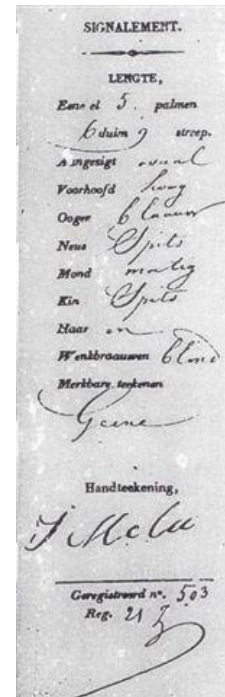 SIGNALEMENT.
LENGTE,
Eene el 5. palmen
6 duim 9 streep.
Aangezigt ovaal
Voorhoofd hoog
Oogen blaauw
Neus Spits
Mond matig
Kin Spits
Haar en
Wenkbraauwen blond
Merkbare teekenen
Geene
Handteekening,
Geregistreerd n°. 503
Reg. 21